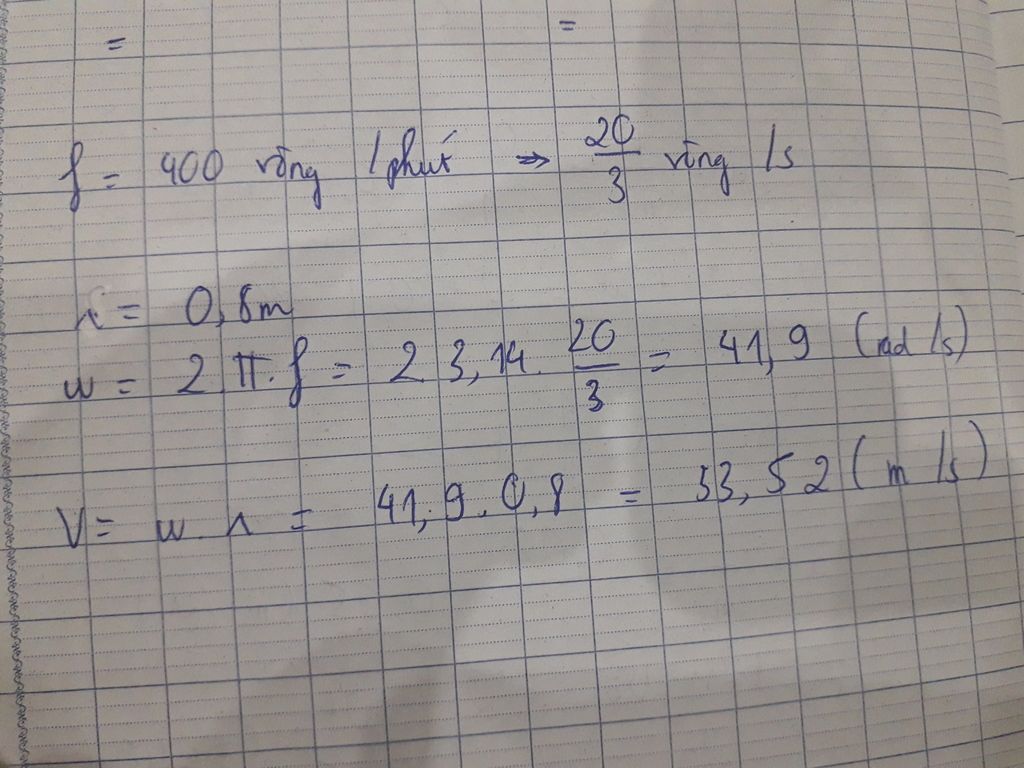 = =
f = 400 vòng /phút => 20/3 vòng /s
r = 0,8m
w = 2 π. f = 2. 3,14. 20/3 = 41,9 (rad /s)
V = w. r = 41,9. 0,8 = 33,52 (m /s)